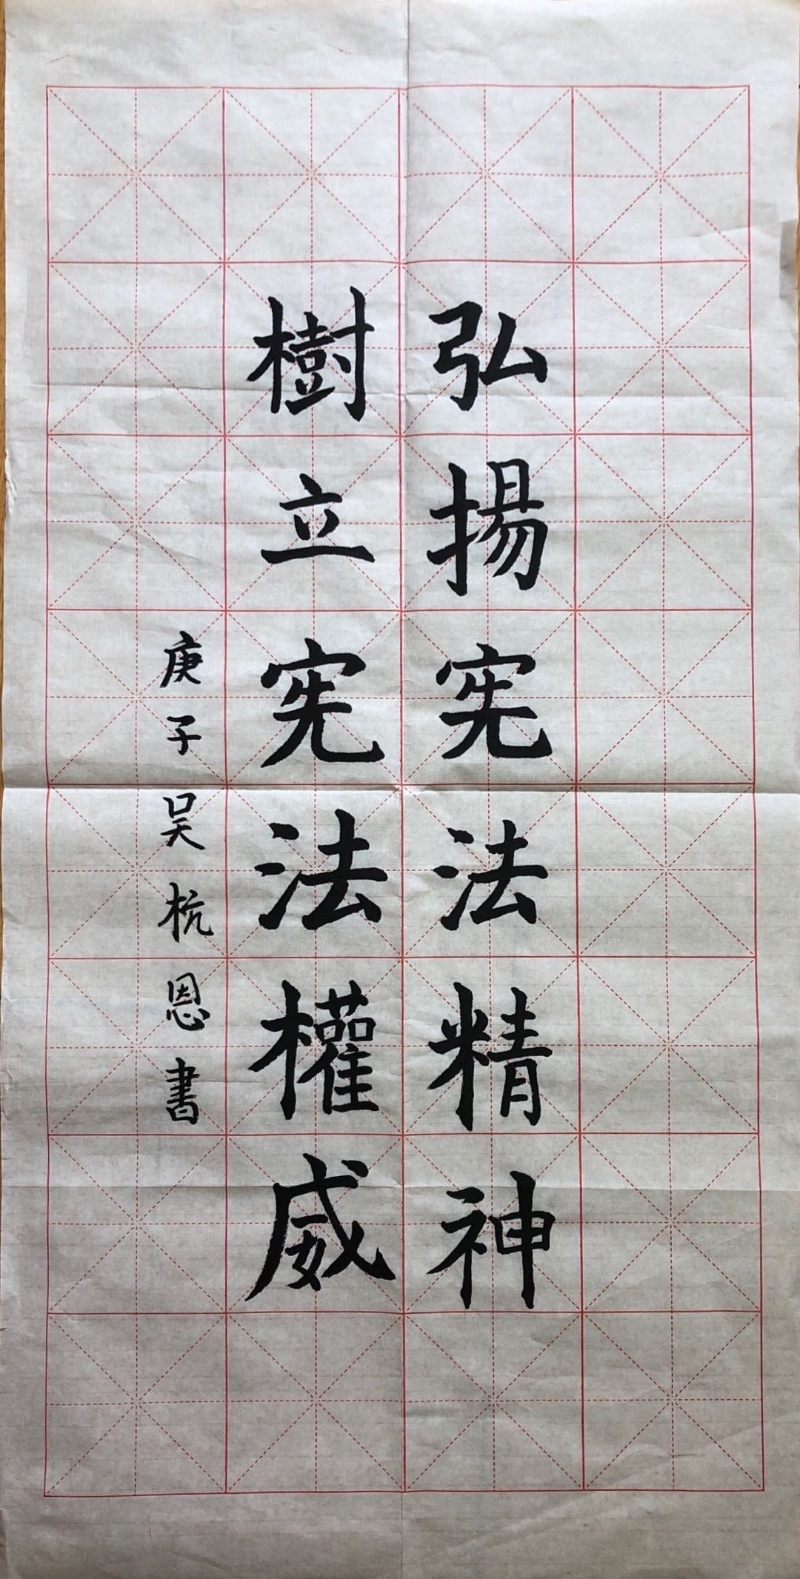 弘揚宪法精神
樹立宪法權威
庚子吴杭恩書